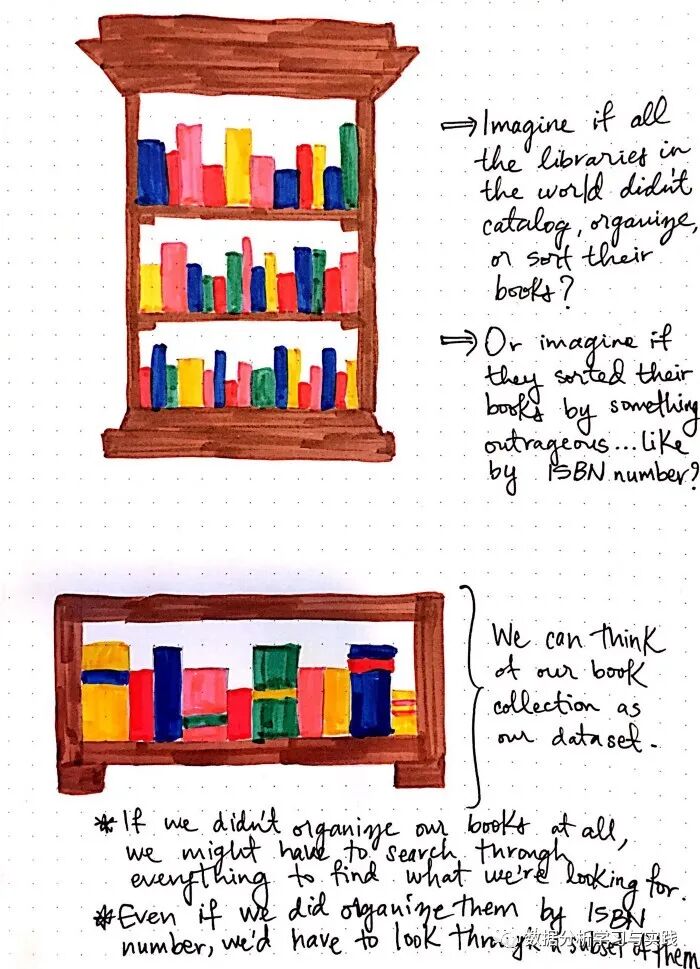 ⇒ Imagine if all
the libraries in
the world didn't
catalog, organize,
or sort their
books?
⇒ Or imagine if
they sorted their
books by something
outrageous...like
by ISBN number?
We can think
of our book
collection as
our dataset.
* If we didn't organize our books at all,
we might have to search through
everything to find what we're looking for.
* Even if we did organize them by ISBN
number, we'd have to look through a subset of them
数据分析学习与实践